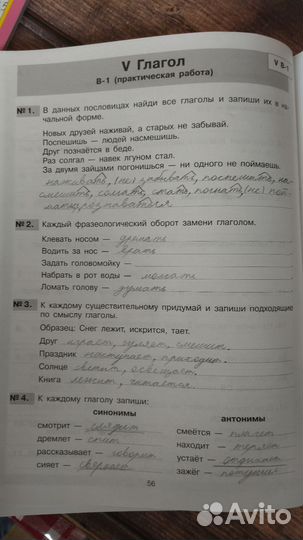 V Глагол
В-1 (практическая работа)
V В-1
№ 1. В данных пословицах найди все глаголы и запиши их в начальной форме.
Новых друзей наживай, а старых не забывай.
Поспешишь – людей насмешишь.
Друг познаётся в беде.
Раз солгал – навек лгуном стал.
За двумя зайцами погонишься – ни одного не поймаешь.
наживать, (не) забывать, поспешить, на-
смешить, солгать, стать, (не) пой-
мать,
№ 2. Каждый фразеологический оборот замени глаголом.
Клевать носом – дремать
Водить за нос – врать
Задать головомойку –
Набрать в рот воды – молчать
Ломать голову – думать
№ 3. К каждому существительному придумай и запиши подходящие по смыслу глаголы.
Образец: Снег лежит, искрится, тает.
Друг играет, гуляет, смешит.
Праздник наступает, приходит.
Солнце светит, освещает.
Книга лежит, читается.
№ 4. К каждому глаголу запиши:
синонимы
антонимы
смотрит – глядит
смеётся – плачет
дремлет – спит
находит – теряет
рассказывает – говорит
устаёт – отдыхает
сияет – сверкает
зажёг – потушил
56
Avito